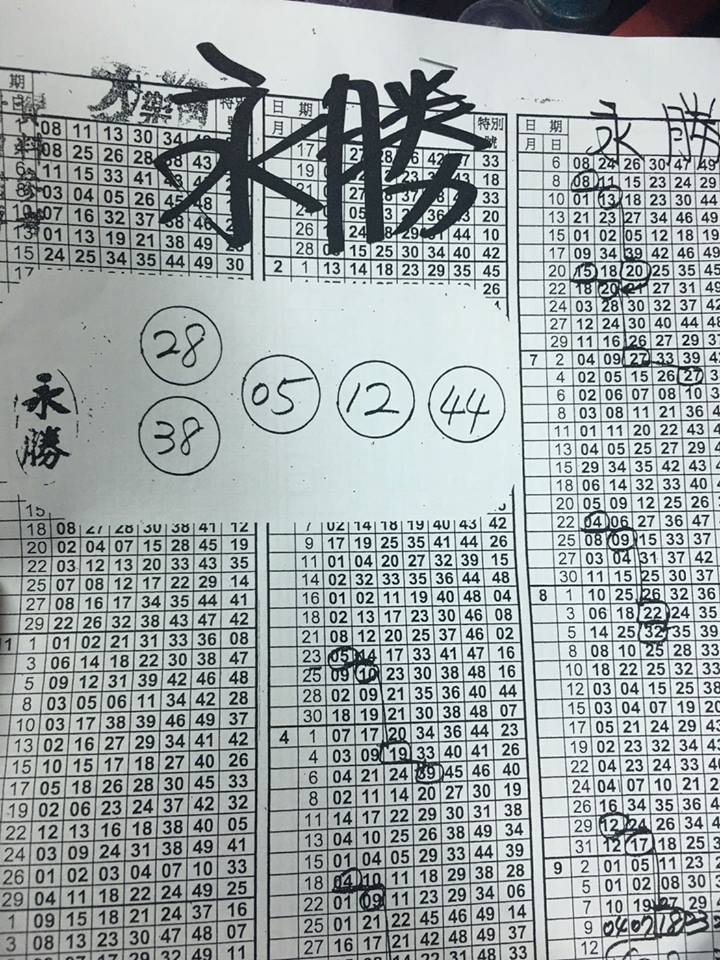 永勝
樂
永勝
期
日 期
月
特別號
日 期
月 日
08 11 13 30 34
08 25 26 28
11 15 33 41
03 04 05 26 45
07 16 32 37
01 13 19 21 38 49
15 24 25 34 35 44 49 30
17
33
18
33
20
10
28 08 15 25 30 34 40 42
2 1 13 14 18 23 29 35 45
26
永勝
28
38
05
12
44
15
18 08 27 28 30 38 41 12
20 02 04 07 15 28 45 19
22 03 12 13 20 33 43 35
25 07 08 12 17 22 29 14
27 08 16 17 34 35 44 41
29 22 26 32 38 43 47 42
1 01 02 21 31 33 36 08
3 06 14 18 22 30 38 47
5 09 12 31 39 42 46 48
8 03 05 06 11 34 42 28
10 03 17 38 39 46 49 37
13 02 16 27 29 34 41 42
15 10 15 17 18 27 40 26
17 05 18 26 28 30 45 33
19 02 06 23 24 37 42 32
22 12 13 16 18 38 40 05
24 03 09 24 31 38 49 41
26 01 02 03 04 07 10 33
29 04 11 18 22 24 49 25
1 09 15 18 21 24 37 16
3 08 13 23 30 47 48 07
7 02 14 18 19 40 43 42
9 17 19 25 35 41 44 26
11 01 04 20 27 32 39 15
14 02 32 33 35 36 44 48
16 01 02 11 19 40 48 04
18 02 13 17 23 30 46 08
21 08 12 20 25 37 46 02
23 05 14 17 33 41 47 16
25 09 10 23 30 38 48 16
28 02 09 21 35 36 40 44
30 18 19 21 30 38 48 07
4 1 07 17 20 34 36 44 23
4 03 09 19 33 40 41 26
6 04 21 24 39 45 46 40
8 02 11 14 20 27 30 19
11 14 17 22 29 30 31 38
13 04 10 25 26 38 49 34
15 01 04 05 29 33 44 39
18 04 10 11 18 29 38 28
22 01 09 11 23 29 34 06
25 01 21 22 45 46 49 14
27 16 17 21 42 48 49 37
6 08 24 26 30 47 49
8 08 11 15 23 24 29
10 01 13 18 23 30 44
13 21 23 27 34 46 49
15 01 02 05 12 18 19
17 09 34 39 42 46 49
20 15 18 20 25 35 45
22 18 20 21 27 31 49
24 03 28 30 32 37 42
27 12 24 30 40 44 48
29 11 16 26 27 29 37
7 2 04 09 27 33 39
4 02 05 15 26 27
6 02 06 07 08 10
8 03 08 11 21 36
11 01 11 20 22 43
13 04 05 25 27 29
15 29 34 35 42 43
18 06 14 32 33 40
20 05 09 12 25 26
22 04 06 27 36 47
25 08 09 15 33 37
27 03 04 31 37 42
30 11 15 25 30 37
8 1 10 25 26 32 36
3 06 18 22 24 35
5 14 25 32 35 39
8 08 10 25 28 33
10 18 22 25 32 33
12 03 04 15 25 38
15 03 04 07 19 20
17 05 21 24 29 43
19 02 23 32 34 43
22 04 23 24 33 40
24 04 07 10 21 21
26 16 34 35 36
29 12 24 26 34
31 12 17 18 25
9 2 01 05 11 23
5 01 02 08 30
7 10 19 27 29
9 04 07 18 23
12